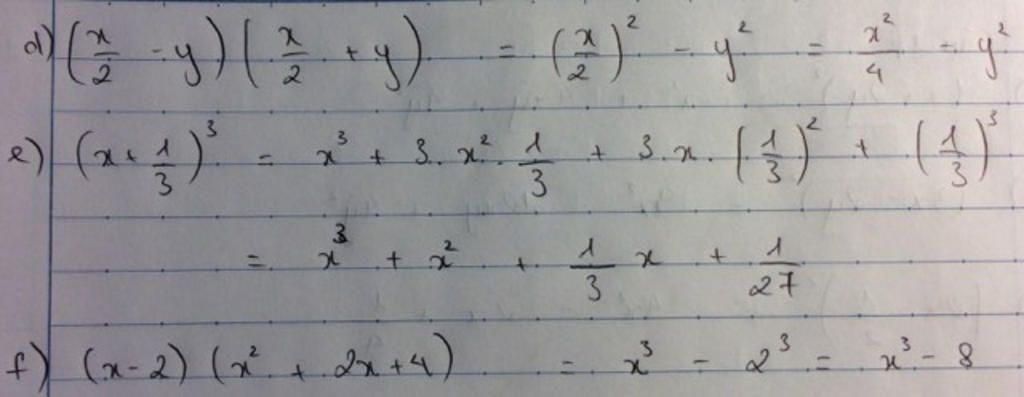 d) (x/2 - y) (x/2 + y) = (x/2)² - y² = x²/4 - y²
e) (x + 1/3)³ = x³ + 3. x². 1/3 + 3. x. (1/3)² + (1/3)³
= x³ + x² + 1/3 x + 1/27
f) (x - 2) (x² + 2x + 4) = x³ - 2³ = x³ - 8